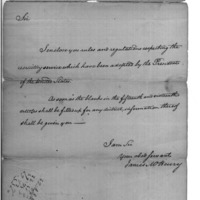 Sir
I enclose you rules and regulations respecting the
recruiting service which have been adopted by the President
of the United States.
As soon as the blanks in the fifteenth
shall be filled up for any district, information thereof
shall be given you
I am Sir
your obed servant
James McHenry